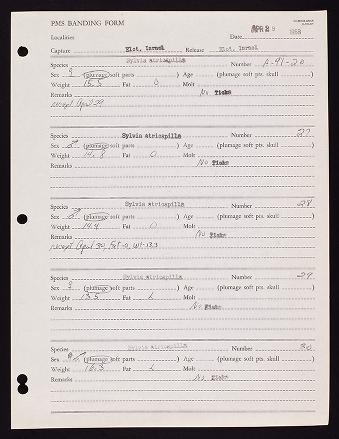 PMS BANDING FORM
Localities
Date APR 29 1968
Capture Elat, Israel Release Elat, Israel
Species Sylvia atricapilla Number A-91-20
Sex ♀ (plumage soft parts ) Age (plumage soft pts. skull )
Weight 15.5 Fat 0 Molt
Remarks No Ticks
recapt April 29
Species Sylvia atricapilla Number 27
Sex ♂ (plumage soft parts ) Age (plumage soft pts. skull )
Weight 14.8 Fat 0 Molt
Remarks No Ticks
Species Sylvia atricapilla Number 28
Sex ♂ (plumage soft parts ) Age (plumage soft pts. skull )
Weight 14.4 Fat 0 Molt
Remarks No Ticks
recapt April 30, Fat-0, Wt-13.3
Species Sylvia atricapilla Number 29
Sex ♀ (plumage soft parts ) Age (plumage soft pts. skull )
Weight 13.5 Fat L Molt
Remarks No Ticks
Species Sylvia atricapilla Number 30
Sex ♂ (plumage soft parts ) Age (plumage soft pts. skull )
Weight 16.3 Fat L Molt
Remarks No Ticks